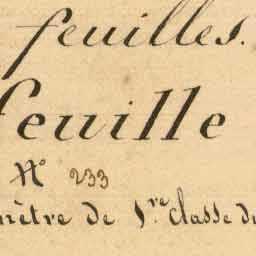 feuilles.
feuille
N° 233
mètre de 1re classe du